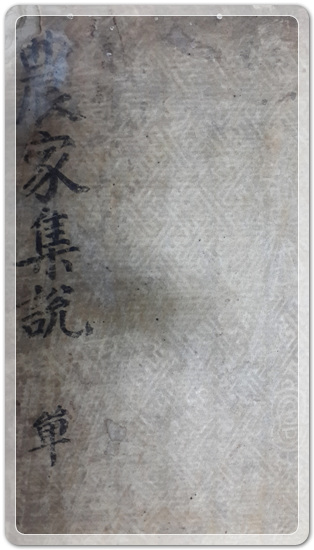 農家集說 單